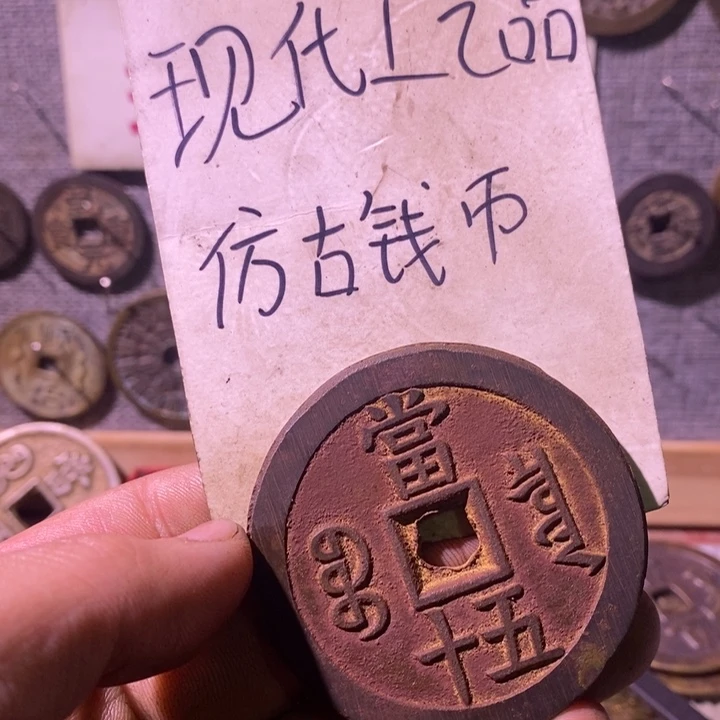 现代工艺品
仿古钱币
當
五十